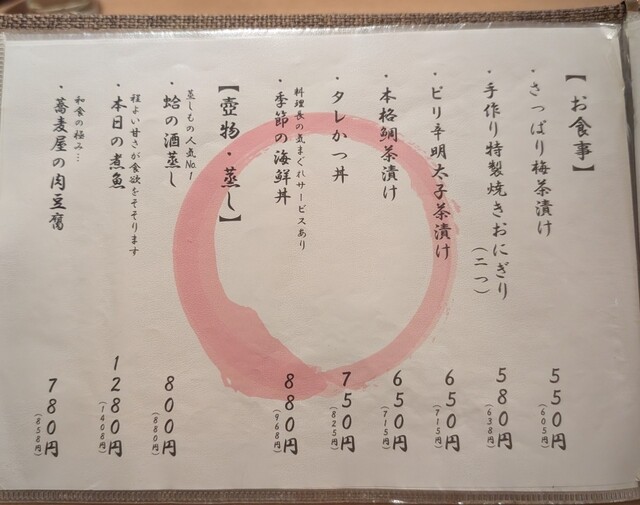 【お食事】
・さっぱり梅茶漬け 550円(605円)
・手作り特製焼きおにぎり(二つ) 580円(638円)
・ピリ辛明太子茶漬け 650円(715円)
・本格鯛茶漬け 650円(715円)
・タレかつ丼 750円(825円)
料理長の気まぐれサービスあり
・季節の海鮮丼 880円(968円)
【壺物・蒸し】
蒸しもの人気No1
・蛤の酒蒸し 800円(880円)
程よい甘さが食欲をそそります
・本日の煮魚 1280円(1408円)
和食の極み…
・蕎麦屋の肉豆腐 780円(858円)